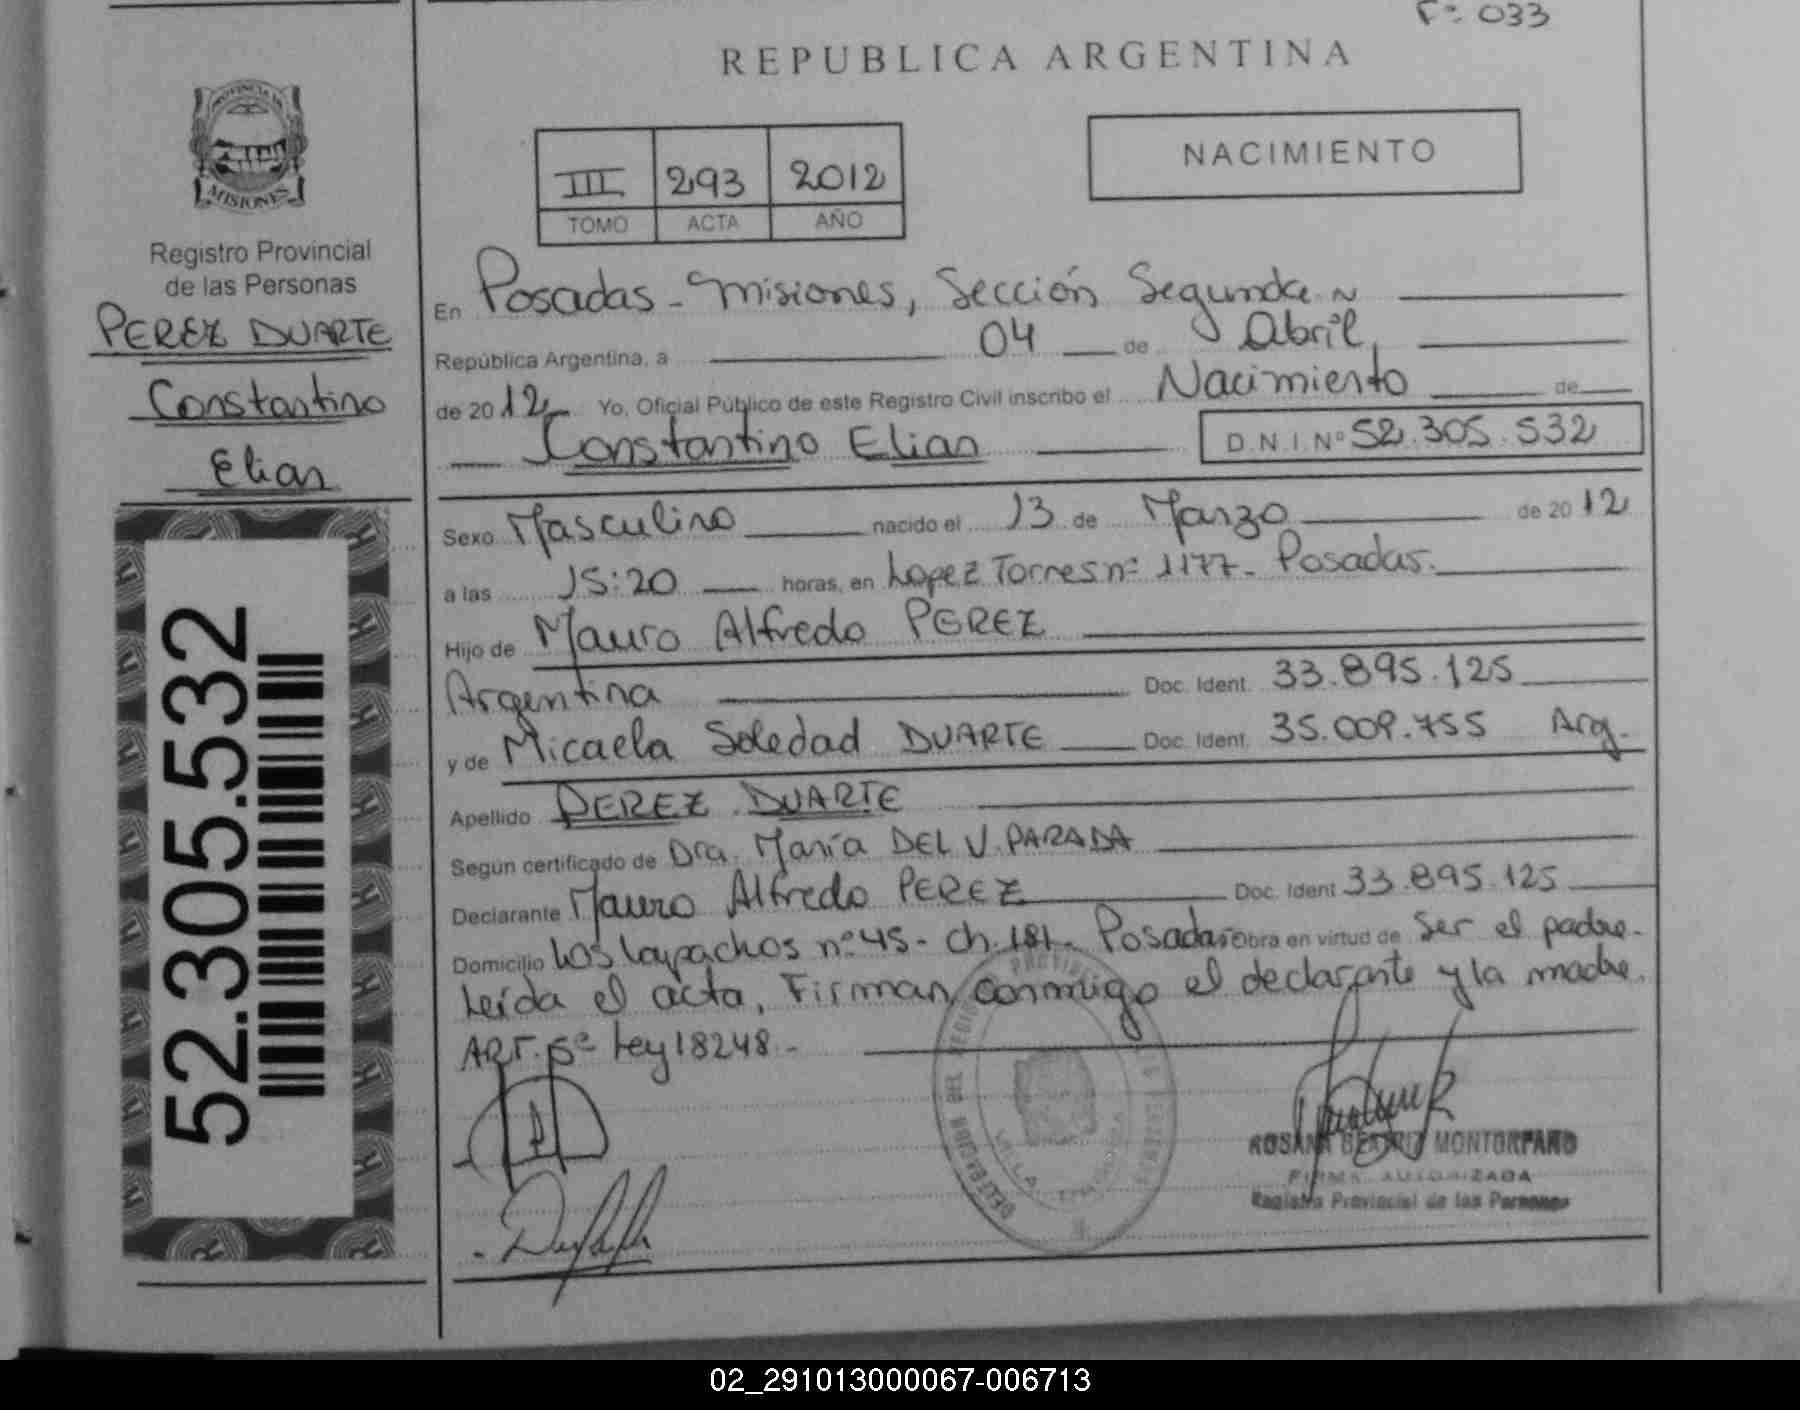 Fº 033
REPUBLICA ARGENTINA
PROVINCIA DE
MISIONES
Registro Provincial
de las Personas
PEREZ DUARTE
Constantino
Elian
52.305.532
III 293 2012
TOMO ACTA AÑO
NACIMIENTO
En Posadas - Misiones, Sección Segunda
República Argentina, a 04 de Abril,
de 2012 Yo, Oficial Público de este Registro Civil inscribo el Nacimiento de
Constantino Elian D.N.I. Nº 52.305.532
Sexo Masculino nacido el 13 de Marzo de 2012
a las 15:20 horas, en Lopez Torres nº 1177 - Posadas.
Hijo de Mauro Alfredo PEREZ
Argentina Doc. Ident. 33.895.125
y de Micaela Soledad DUARTE Doc. Ident. 35.009.755 Arg.
Apellido PEREZ DUARTE
Según certificado de Dra. María DEL V. PARADA
Declarante Mauro Alfredo PEREZ Doc. Ident 33.895.125
Domicilio Los Lapachos nº 45 - Ch. 181 - Posadas Obra en virtud de Ser el padre.
Leída el acta, Firman conmigo el declarante y la madre.
ART. 5º Ley 18248.-
ROSANA BEATRIZ MONTORFANO
FIRMA AUTORIZADA
Registro Provincial de las Personas
02_291013000067-006713